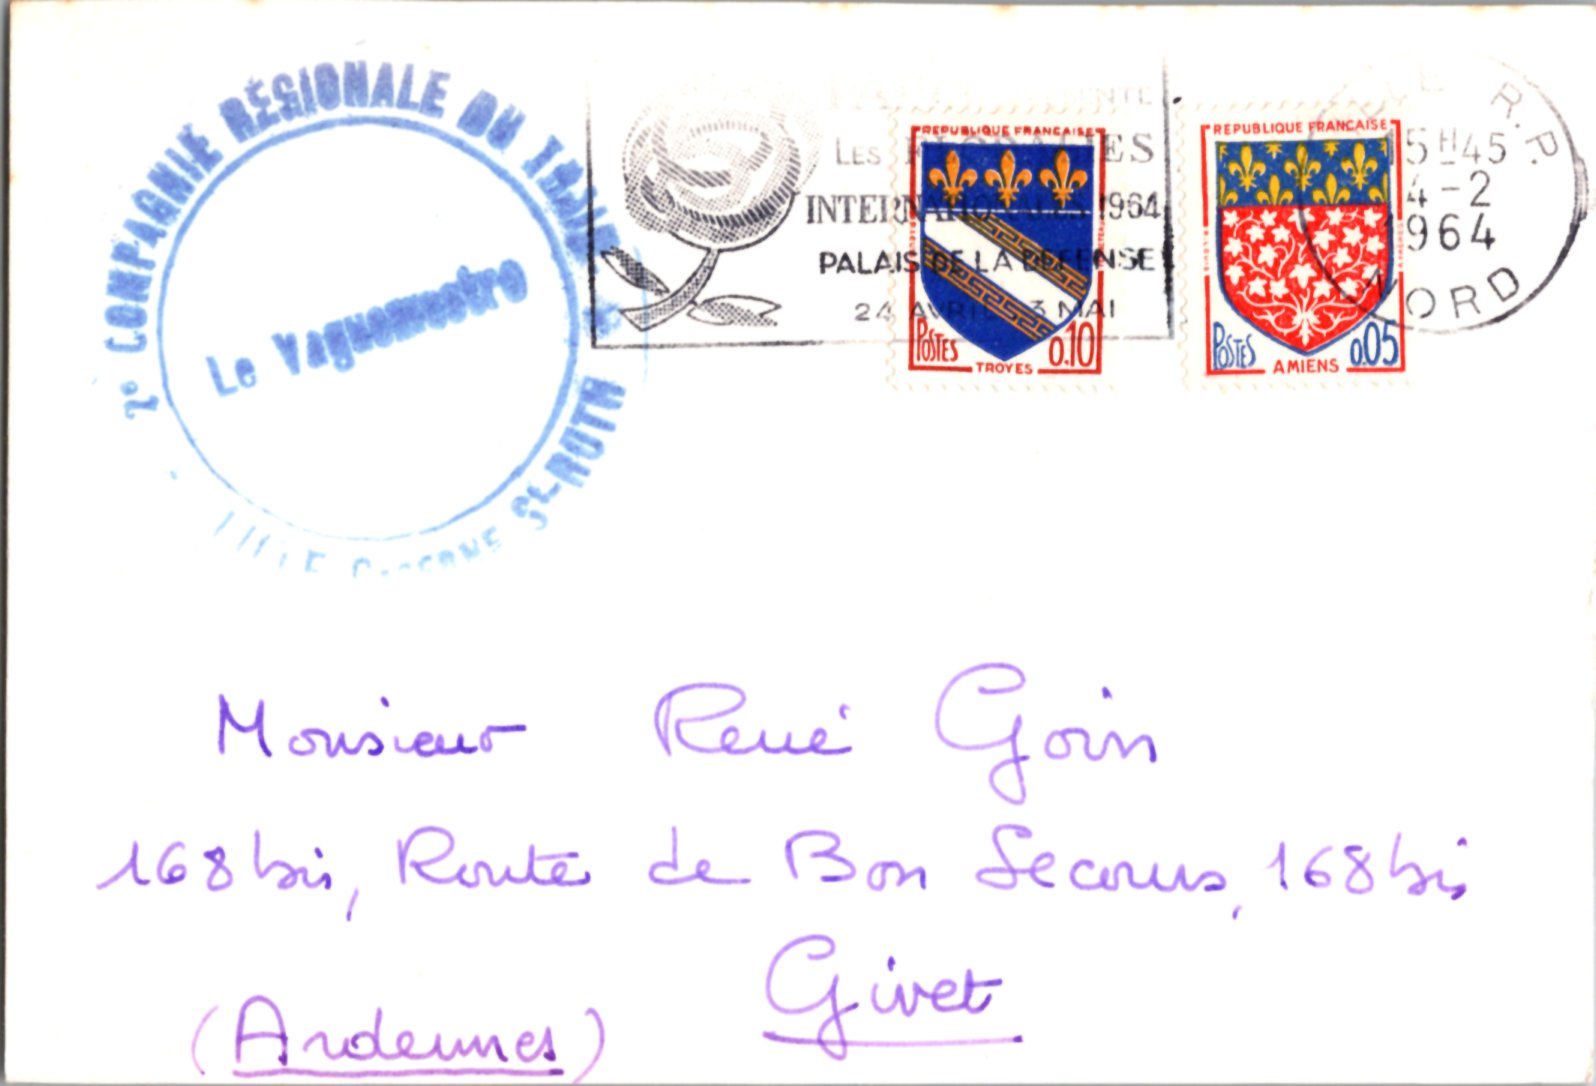 2e COMPAGNIE RÉGIONALE DU TRAIN
Le Vaguemestre
LILLE CASERNE St-RUTH
LES FLORALIES
INTERNATIONALES 1964
PALAIS DE LA DEFENSE
24 AVRIL 3 MAI
REPUBLIQUE FRANCAISE
POSTES 0,10
TROYES
REPUBLIQUE FRANCAISE
POSTES 0,05
AMIENS
R.P.
15H45
4-2
1964
NORD
Monsieur René Goin
168 bis, Route de Bon Secours, 168 bis
Givet
(Ardennes)